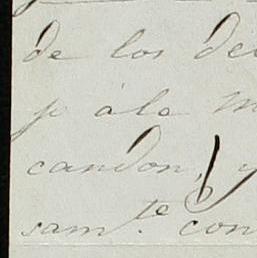 de los de
p ála m
candon, y
samte. con